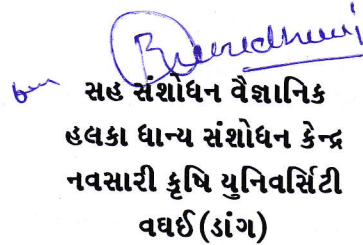 સહ સંશોધન વૈજ્ઞાનિક
હલકા ધાન્ય સંશોધન કેન્દ્ર
નવસારી કૃષિ યુનિવર્સિટી
વઘઈ(ડાંગ)